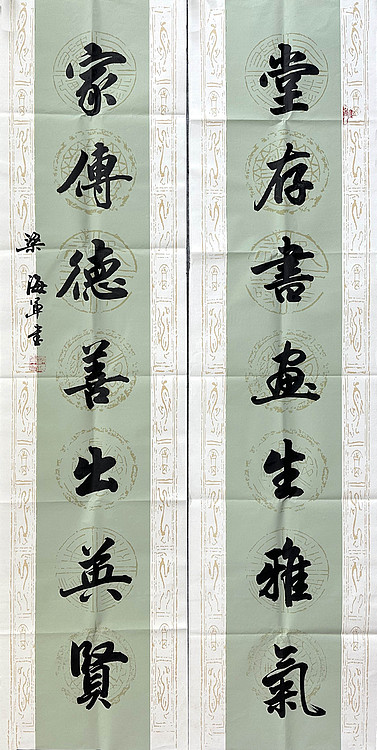 堂存書画生雅氣
家傳德善出英賢
梁海軍書